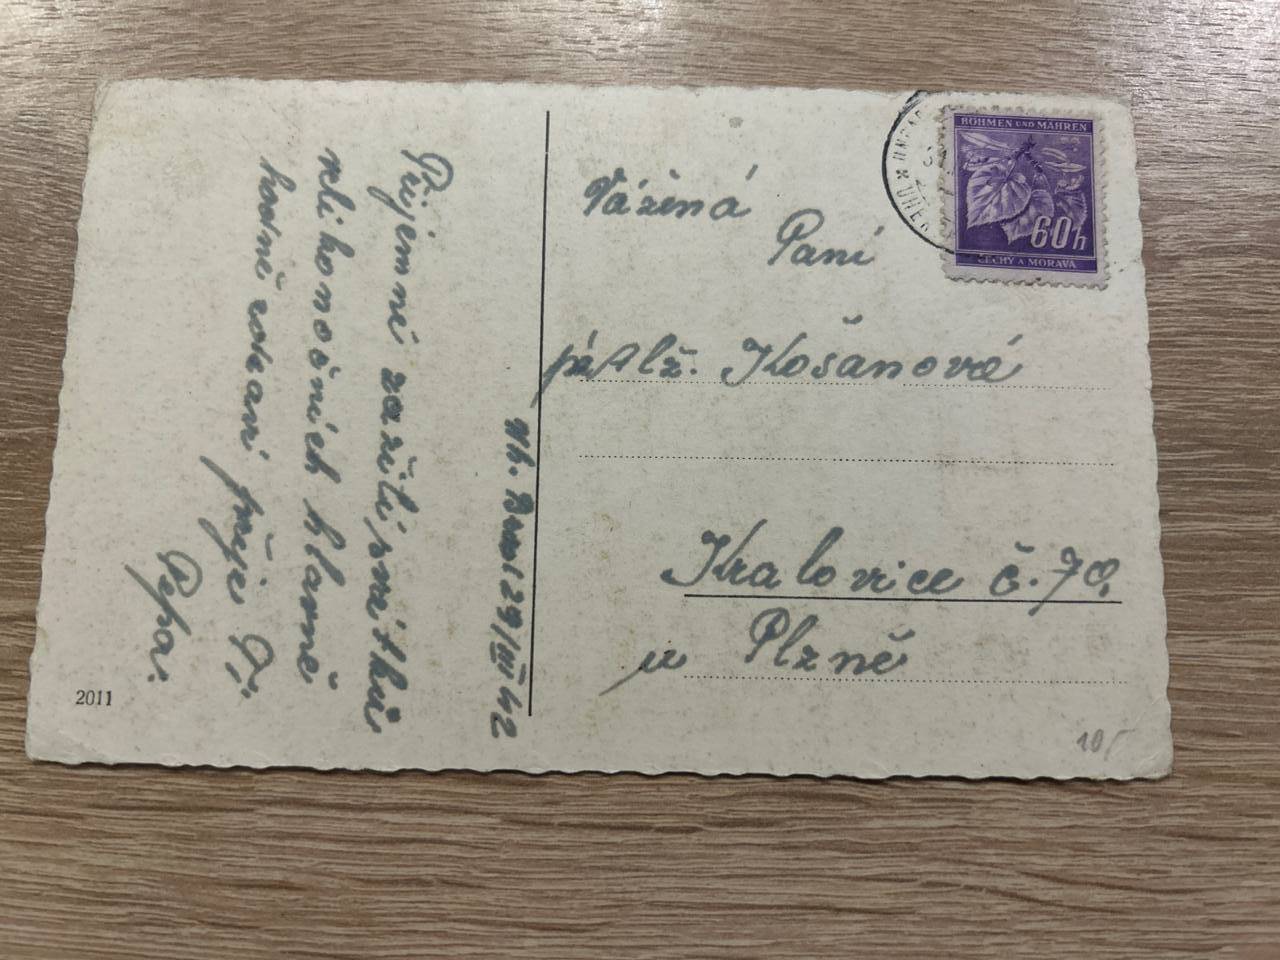 Příjemní zažití, svátků
velikonočních hlavně
hodně zdraví přeje Ti
Pepa.
Uh. Brod 29/III 42
Vážená
Paní
Alž. Košanová
Kralovice č. 70,
u Plzně
BÖHMEN UND MÄHREN
60h
ČECHY A MORAVA
2011
10